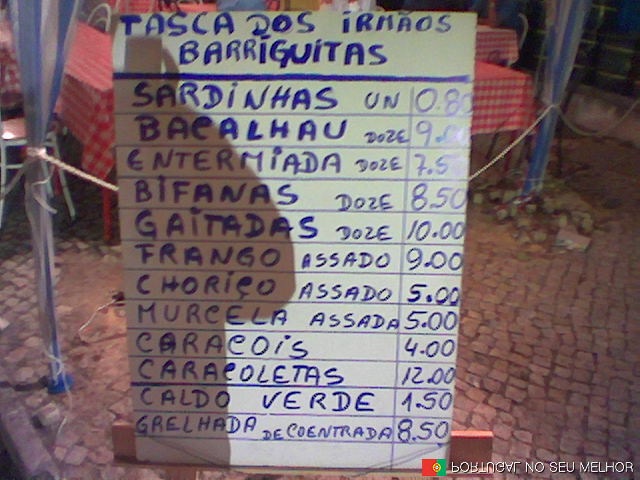 TASCA DOS IRMÃOS
BARRIGUITAS
SARDINHAS UN 0.80
BACALHAU DOZE 9.00
ENTERMIADA DOZE 7.5
BIFANAS DOZE 8.50
GAITADAS DOZE 10.00
FRANGO ASSADO 9.00
CHORIÇO ASSADO 5.00
MURCELA ASSADA 5.00
CARACOIS 4.00
CARACOLETAS 12.00
CALDO VERDE 1.50
GRELHADA DE COENTRADA 8.50
PORTUGAL NO SEU MELHOR